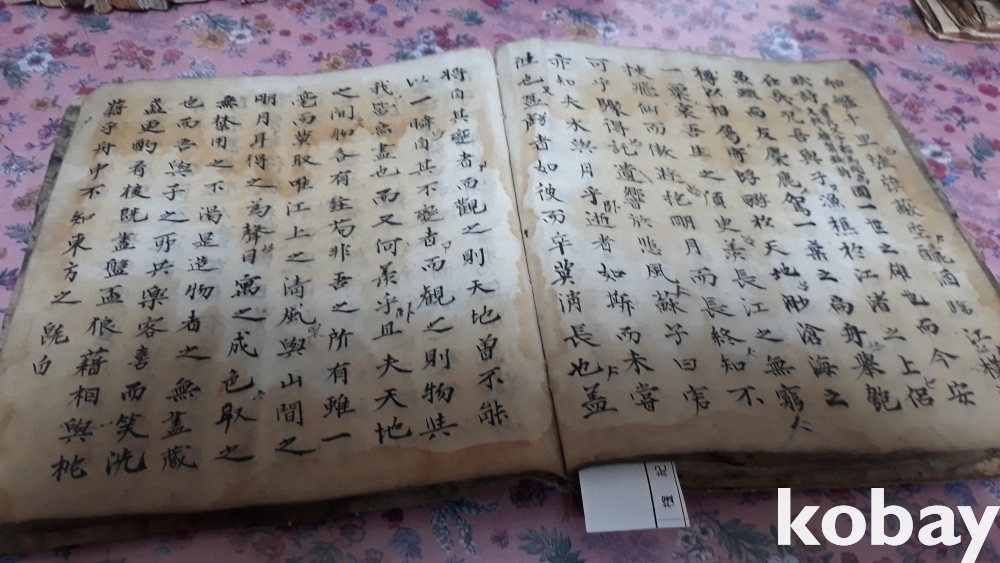 舳艫千里旌旗蔽空釃酒臨江橫
槊賦詩固一世之雄也而今安
在哉况吾與子漁樵於江渚之上侶
魚鰕而友麋鹿駕一葉之扁舟擧匏
樽以相屬寄蜉蝣於天地渺滄海之
一粟哀吾生之須臾羨長江之無窮
挾飛仙而遨遊抱明月而長終知不
可乎驟得託遺響於悲風蘇子曰客
亦知夫水與月乎逝者如斯而未嘗
往也盈虛者如彼而卒莫消長也盖
將自其變者而觀之則天地曾不能
以一瞬自其不變者而觀之則物與
我皆無盡也而又何羨乎且夫天地
之間物各有主苟非吾之所有雖一
毫而莫取唯江上之淸風與山間之
明月耳得之爲聲目寓之成色取之
無禁用之不渴是造物者之無盡藏
也而吾與子之所共樂客喜而笑洗
盞更酌肴核旣盡盤盃狼藉相與枕
藉乎舟中不知東方之旣白
kobay